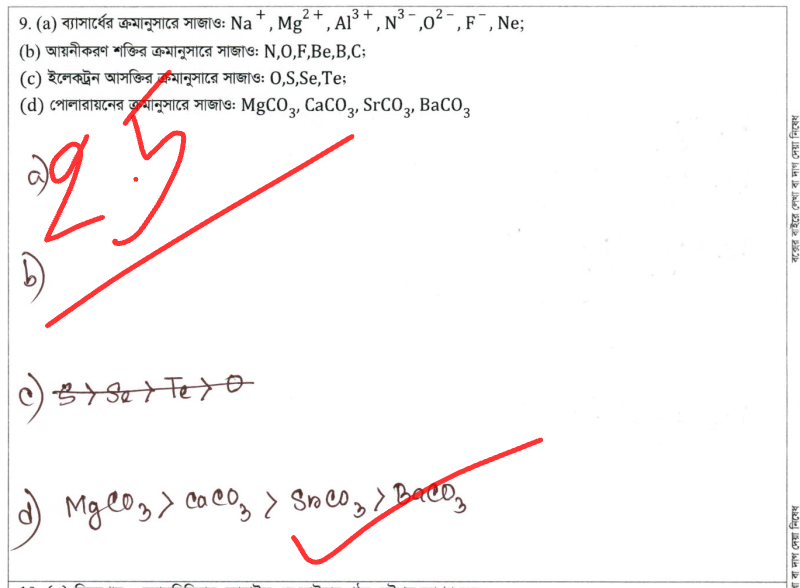 9. (a) ব্যাসার্ধের ক্রমানুসারে সাজাও: Na⁺, Mg²⁺, Al³⁺, N³⁻, O²⁻, F⁻, Ne;
(b) আয়নীকরণ শক্তির ক্রমানুসারে সাজাও: N,O,F,Be,B,C;
(c) ইলেকট্রন আসক্তির ক্রমানুসারে সাজাও: O,S,Se,Te;
(d) পোলারায়নের ক্রমানুসারে সাজাও: MgCO₃, CaCO₃, SrCO₃, BaCO₃
a)
2.5
b)
c) S > Se > Te > O
d) MgCO₃ > CaCO₃ > SrCO₃ > BaCO₃
বক্সের বাইরে লেখা বা দাগ দেয়া নিষেধ